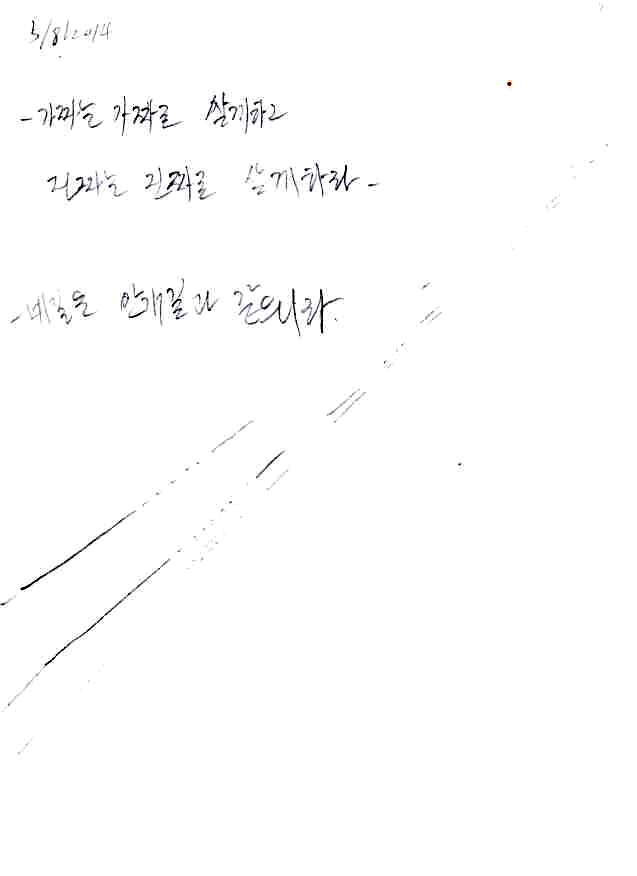 3/8/2014
-가짜는 가짜로 살게하고
진짜는 진짜로 살게하라-
-네길은 안개길과 같으니라.